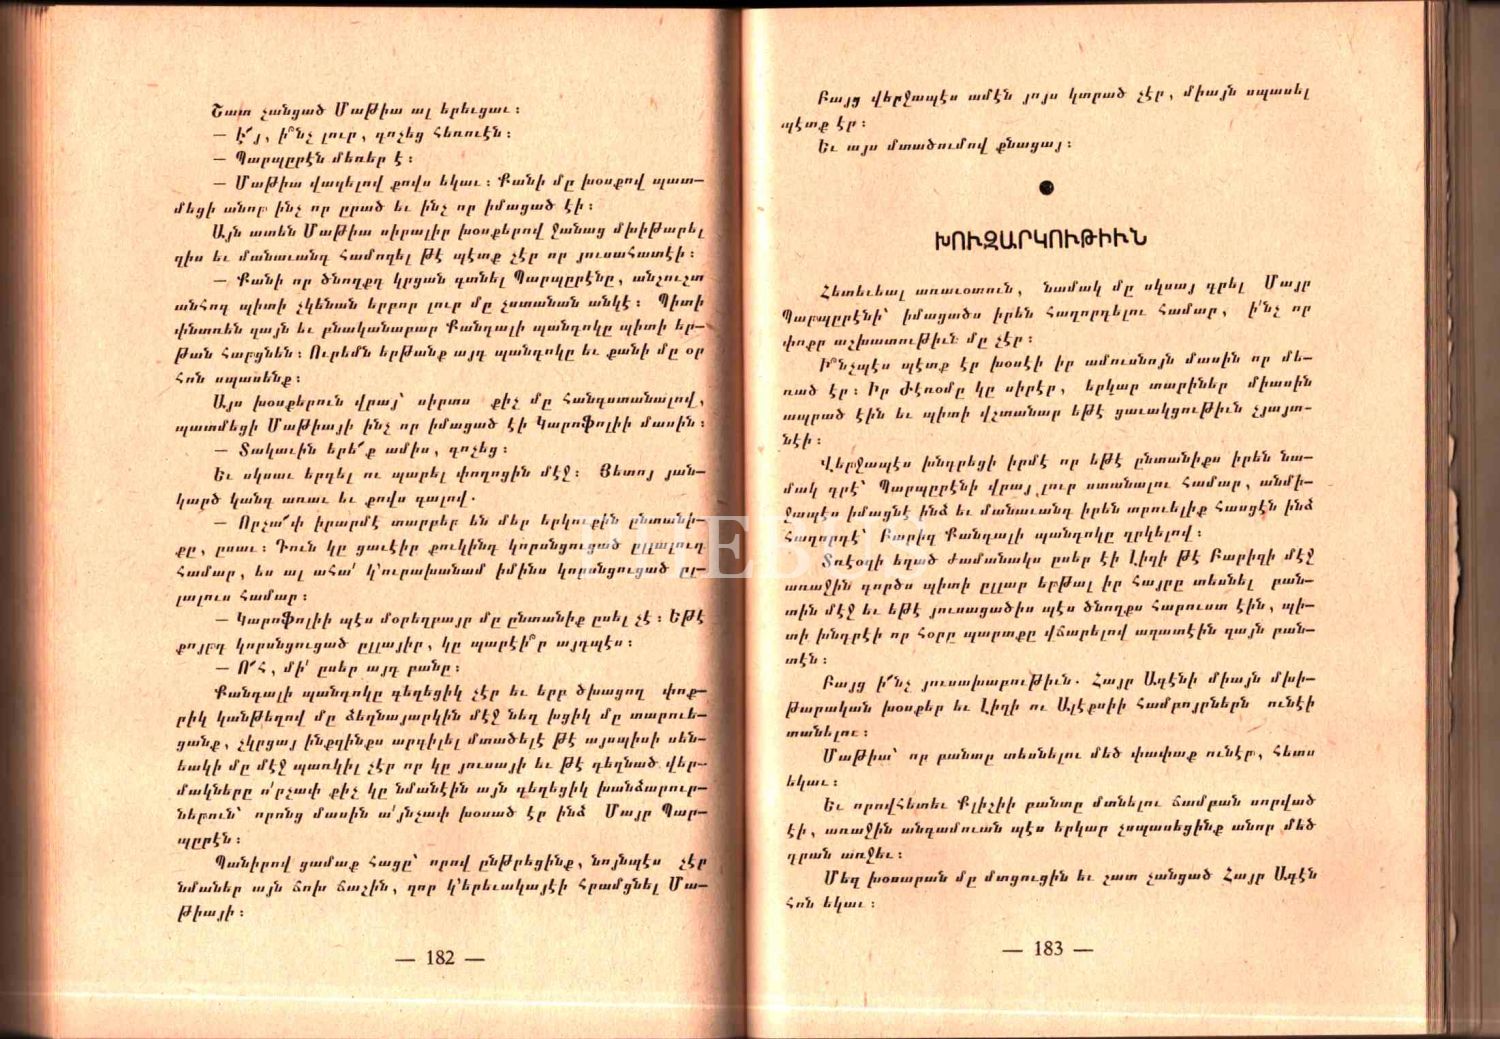 Շատ չանցած Մաթիա ալ երեւցաւ :
— Է՜յ, ի՞նչ լուր, գոչեց հեռուէն :
— Պարպըրէն մեռեր է :
— Մաթիա վազելով քովս եկաւ : Քանի մը խօսքով պատ–
մեցի անոր ինչ որ ըրած եւ ինչ որ իմացած էի :
Այն ատեն Մաթիա սիրալիր խօսքերով ջանաց մխիթարել
զիս եւ մանաւանդ համոզել թէ պէտք չէր որ յուսահատէի :
— Քանի որ ծնողքդ կրցան գտնել Պարպըրէնը, անշուշտ
անհոգ պիտի չկենան երբոր լուր մը չստանան անկէ : Պիտի
փնտռեն զայն եւ բնականաբար Քանդալի պանդոկը պիտի եր–
թան հարցնեն : Ուրեմն երթանք այդ պանդոկը եւ քանի մը օր
հոն սպասենք :
Այս խօսքերուն վրայ՝ սիրտս քիչ մը հանդստանալով,
պատմեցի Մաթիայի ինչ որ իմացած էի Կարոֆոլիի մասին :
— Տակաւին երե՜ք ամիս, գոչեց :
Եւ սկսաւ երգել ու պարել փողոցին մէջ : Յետոյ յան–
կարծ կանգ առաւ եւ քովս գալով.
— Որչա՜փ իրարմէ տարբեր են մեր երկուքին ընտանի–
քը, ըսաւ : Դուն կը ցաւէիր քուկինդ կորսնցուցած ըլլալուդ
համար, ես ալ ահա՛ կ՚ուրախանամ իմինս կորսնցուցած ըլ–
լալուս համար :
— Կարոֆոլիի պէս մօրեղբայր մը ընտանիք ըսել չէ : Եթէ
քոյրդ կորսնցուցած ըլլայիր, կը պարէի՞ր այդպէս :
— Ո՜հ, մի՛ ըսեր այդ բանը :
Քանդալի պանդոկը գեղեցիկ չէր եւ երբ ծխացող փոք–
րիկ կանթեղով մը ձեղնայարկին մէջ նեղ խցիկ մը տարուե–
ցանք, չկրցայ ինքզինքս արգիլել մտածելէ թէ այսպիսի սեն–
եակի մը մէջ պառկիլ չէր որ կը յուսայի եւ թէ դեղնած վեր–
մակները ո՛րչափ քիչ կը նմանէին այն գեղեցիկ խանձարուր–
ներուն՝ որոնց մասին ա՛յնչափ խօսած էր ինձ Մայր Պար–
պըրէն :
Պանիրով ցամաք հացը՝ որով ընթրեցինք, նոյնպէս չէր
նմաներ այն ճոխ ճաշին, զոր կ՚երեւակայէի հրամցնել Մա–
թիայի :
— 182 —
Բայց վերջապէս ամէն յոյս կտրած չէր, միայն սպասել
պէտք էր :
Եւ այս մտածումով քնացայ :
●
ԽՈՒԶԱՐԿՈՒԹԻՒՆ
Հետեւեալ առաւօտուն, նամակ մը սկսայ գրել Մայր
Պարպըրէնի՝ իմացածս իրեն հաղորդելու համար, ի՛նչ որ
փոքր աշխատութիւն մը չէր :
Ի՞նչպէս պէտք էր խօսէի իր ամուսնոյն մասին որ մե–
ռած էր : Իր Ժէռօմը կը սիրէր, երկար տարիներ միասին
ապրած էին եւ պիտի վշտանար եթէ ցաւակցութիւն չյայտ–
նէի :
Վերջապէս խնդրեցի իրմէ որ եթէ ընտանիքս իրեն նա–
մակ գրէ՝ Պարպըրէնի վրայ լուր ստանալու համար, անմի–
ջապէս իմացնէ ինձ եւ մանաւանդ իրեն տրուելիք հասցէն ինձ
հաղորդէ՝ Բարիզ Քանդալի պանդոկը ղրկելով :
Տռէօզի եղած ժամանակս ըսեր էի Լիզի թէ Բարիզի մէջ
առաջին գործս պիտի ըլլար երթալ իր հայրը տեսնել բան–
տին մէջ եւ եթէ յուսացածիս պէս ծնողքս հարուստ էին, պի–
տի խնդրէի որ հօրը պարտքը վճարելով ազատէին զայն բան–
տէն :
Բայց ի՜նչ յուսախաբութիւն. Հայր Ազէնի միայն մխի–
թարական խօսքեր եւ Լիզի ու Ալէքսիի համբոյրներն ունէի
տանելու :
Մաթիա՝ որ բանտը տեսնելու մեծ փափաք ունէր, հետս
եկաւ :
Եւ որովհետեւ Քլիշիի բանտը մտնելու ճամբան սորված
էի, առաջին անգամուան պէս երկար չսպասեցինք անոր մեծ
դրան առջեւ :
Մեզ խօսարան մը մտցուցին եւ շատ չանցած Հայր Ազէն
հոն եկաւ :
— 183 —